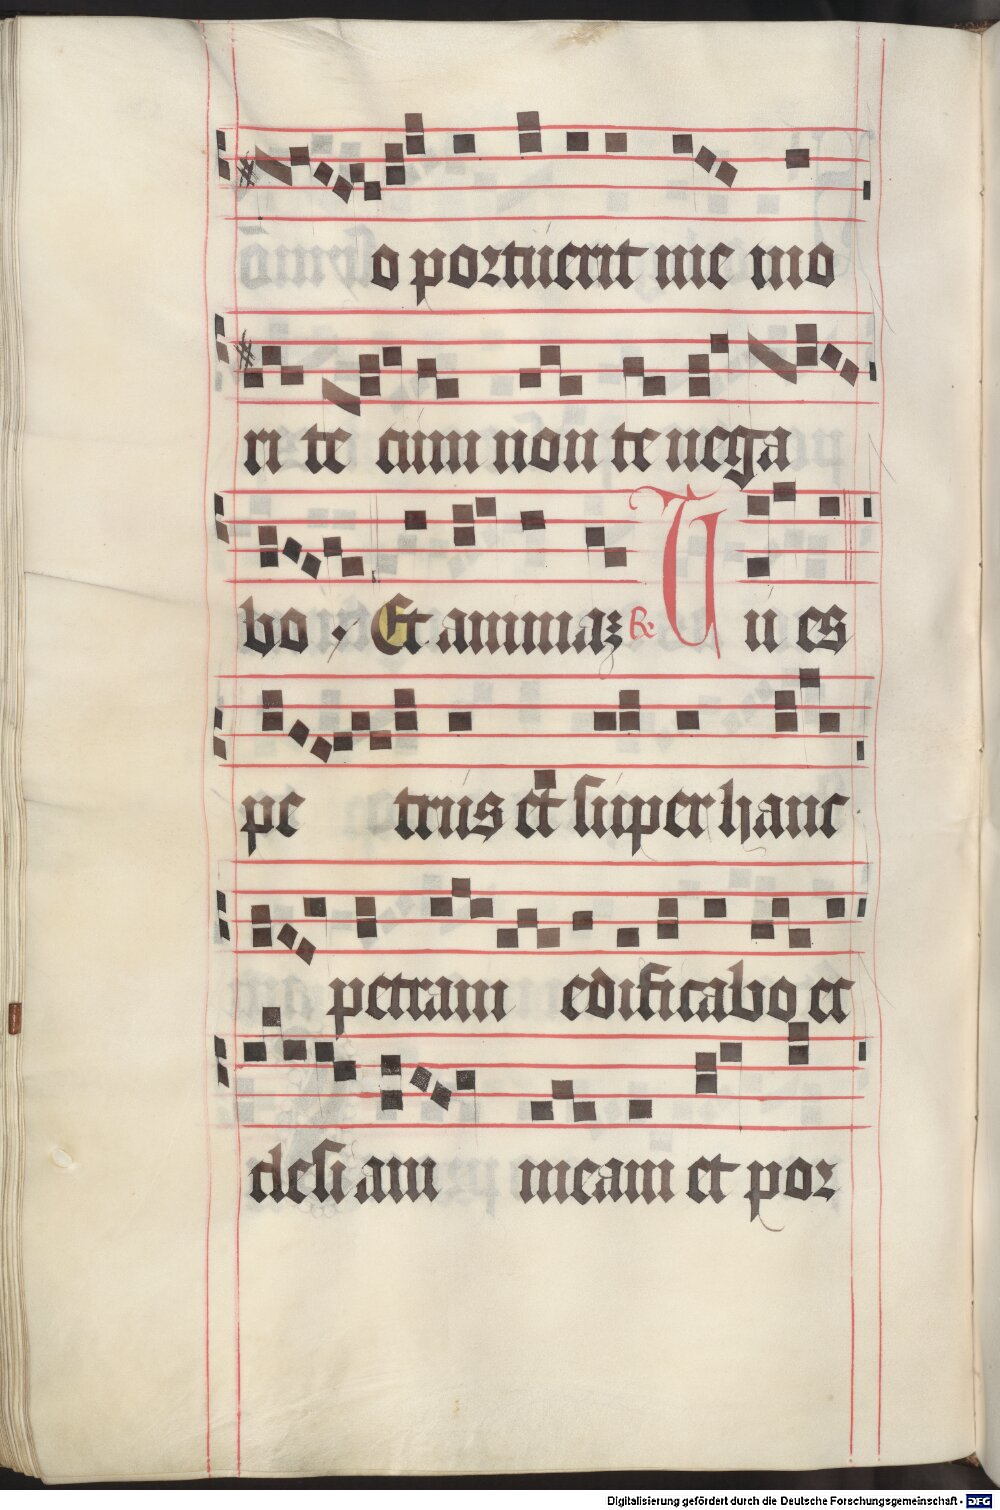 o portuerit me mo
ri te cum non te nega
bo · Et animaꝝ ℟ Tu es
pe trus et super hanc
petram edificabo ec
clesi am meam et por
Digitalisierung gefördert durch die Deutsche Forschungsgemeinschaft - DFG